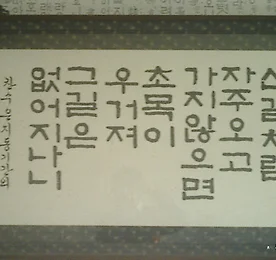 산길처럼
자주오고
가지않으면
초목이
우거져
그길은
없어지나니